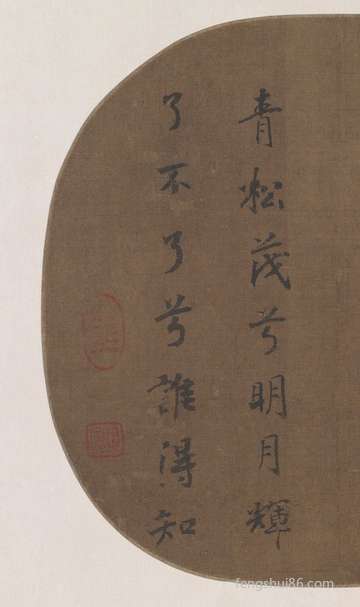 青松茂兮明月輝
了不了兮誰得知
fengshui86.com